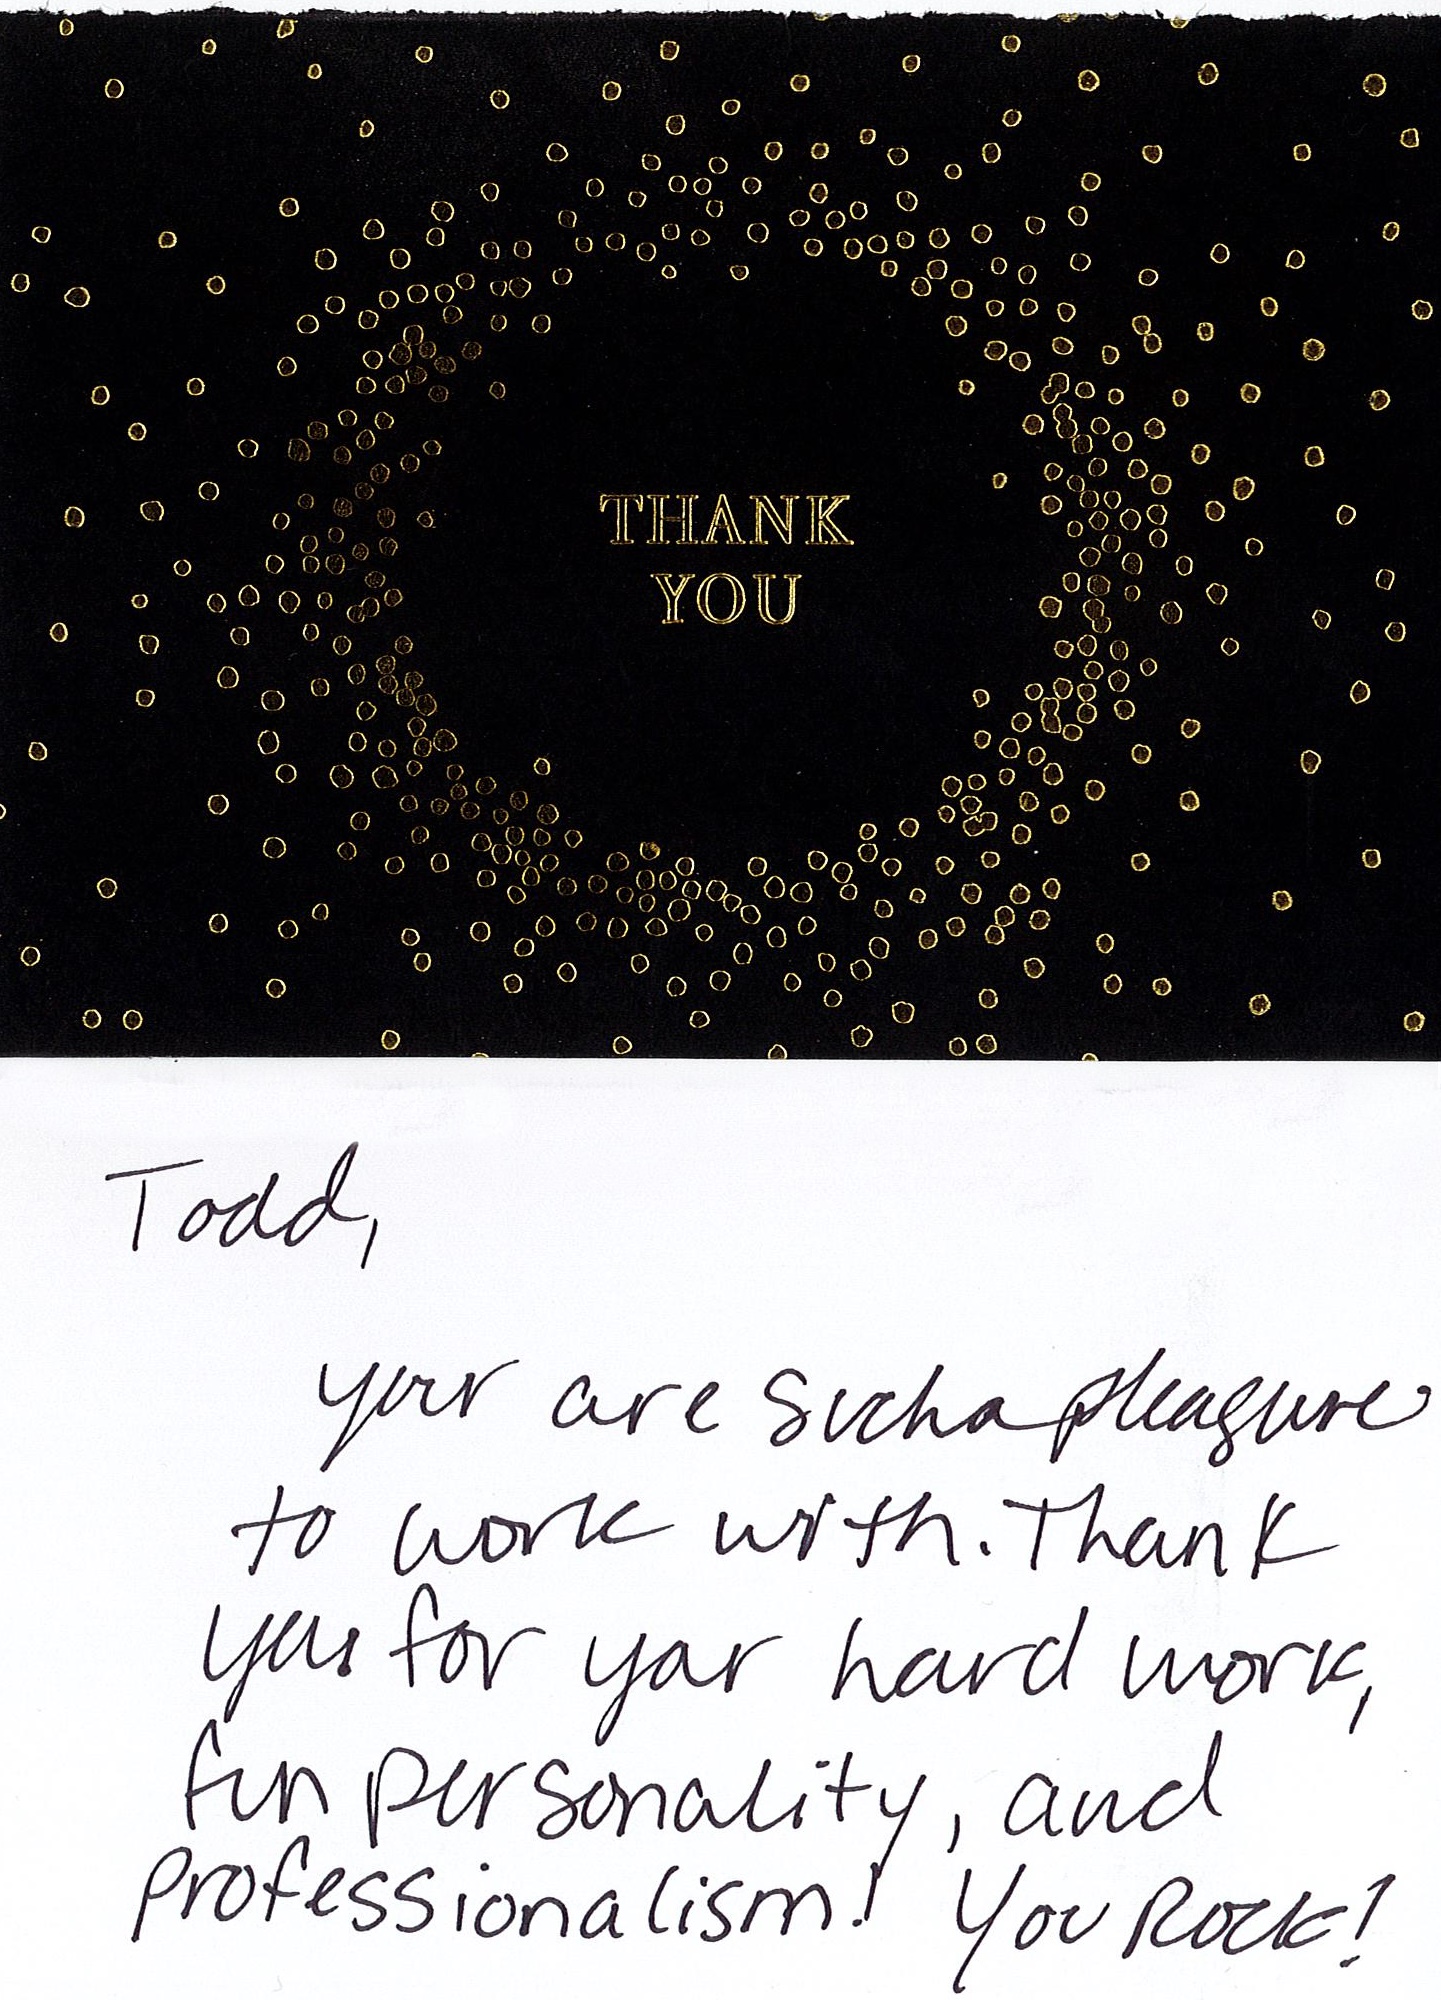 THANK
YOU
Todd,
your are such a pleasure
to work with. Thank
you for your hard work,
fun personality, and
professionalism! You Rock!